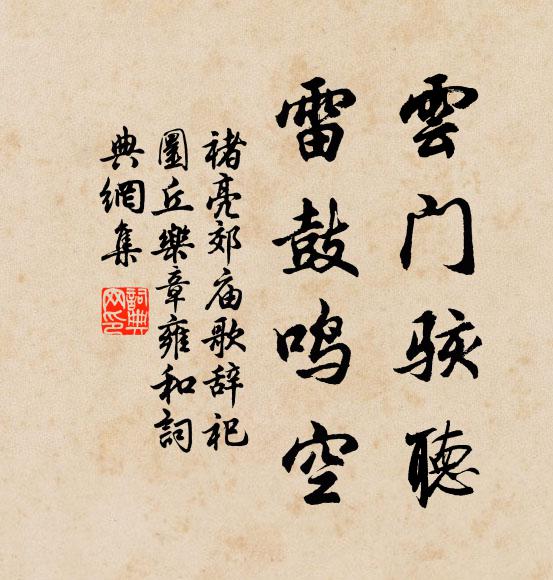 雲门骇聽
雷鼓鸣空
褚亮郊庙歌辞祀
圜丘樂章雍和詞
典網集
詞典网印